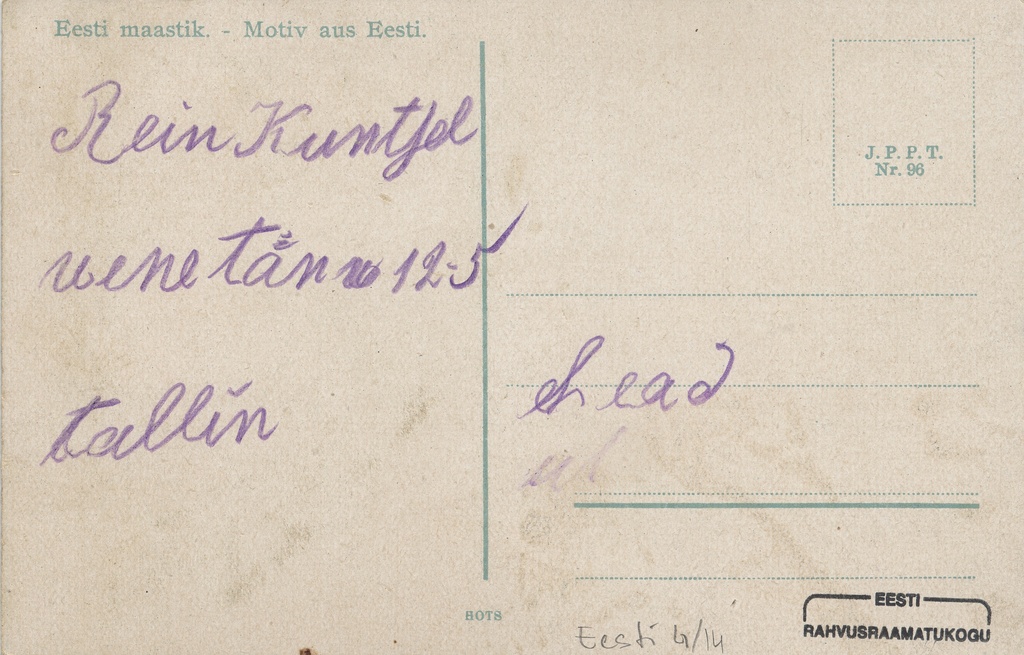 Eesti maastik. - Motiv aus Eesti.
Rein Kuntsel
wene tän no 12-5
tallin
J. P. P. T.
Nr. 96
head
ROTS
Eesti 4/14
EESTI
RAHVUSRAAMATUKOGU